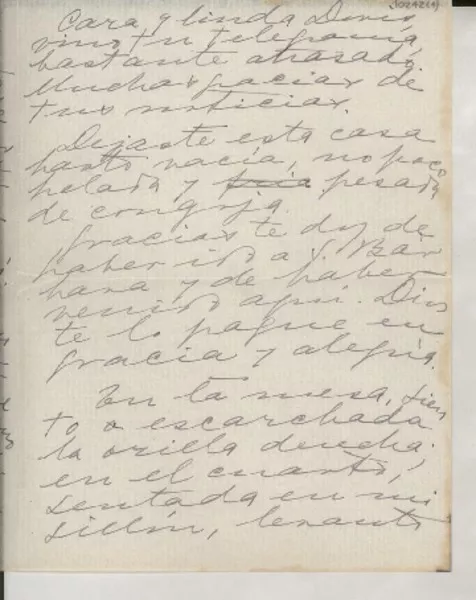 Cara y linda Doris,
vino tu telegrama,
bastante atrasado.
Muchas gracias de
tus noticias.
Dejaste esta casa
harto vacía, no poco
helada y fría pesada
de congoja.
Gracias te doy de
haber ido a S. Bár
bara y de haber
venido aquí. Dios
te lo pague en
gracia y alegría.
En la mesa, sien
to o escarchada
la orilla derecha;
en el cuarto,
sentada en mi
sillón, levanto